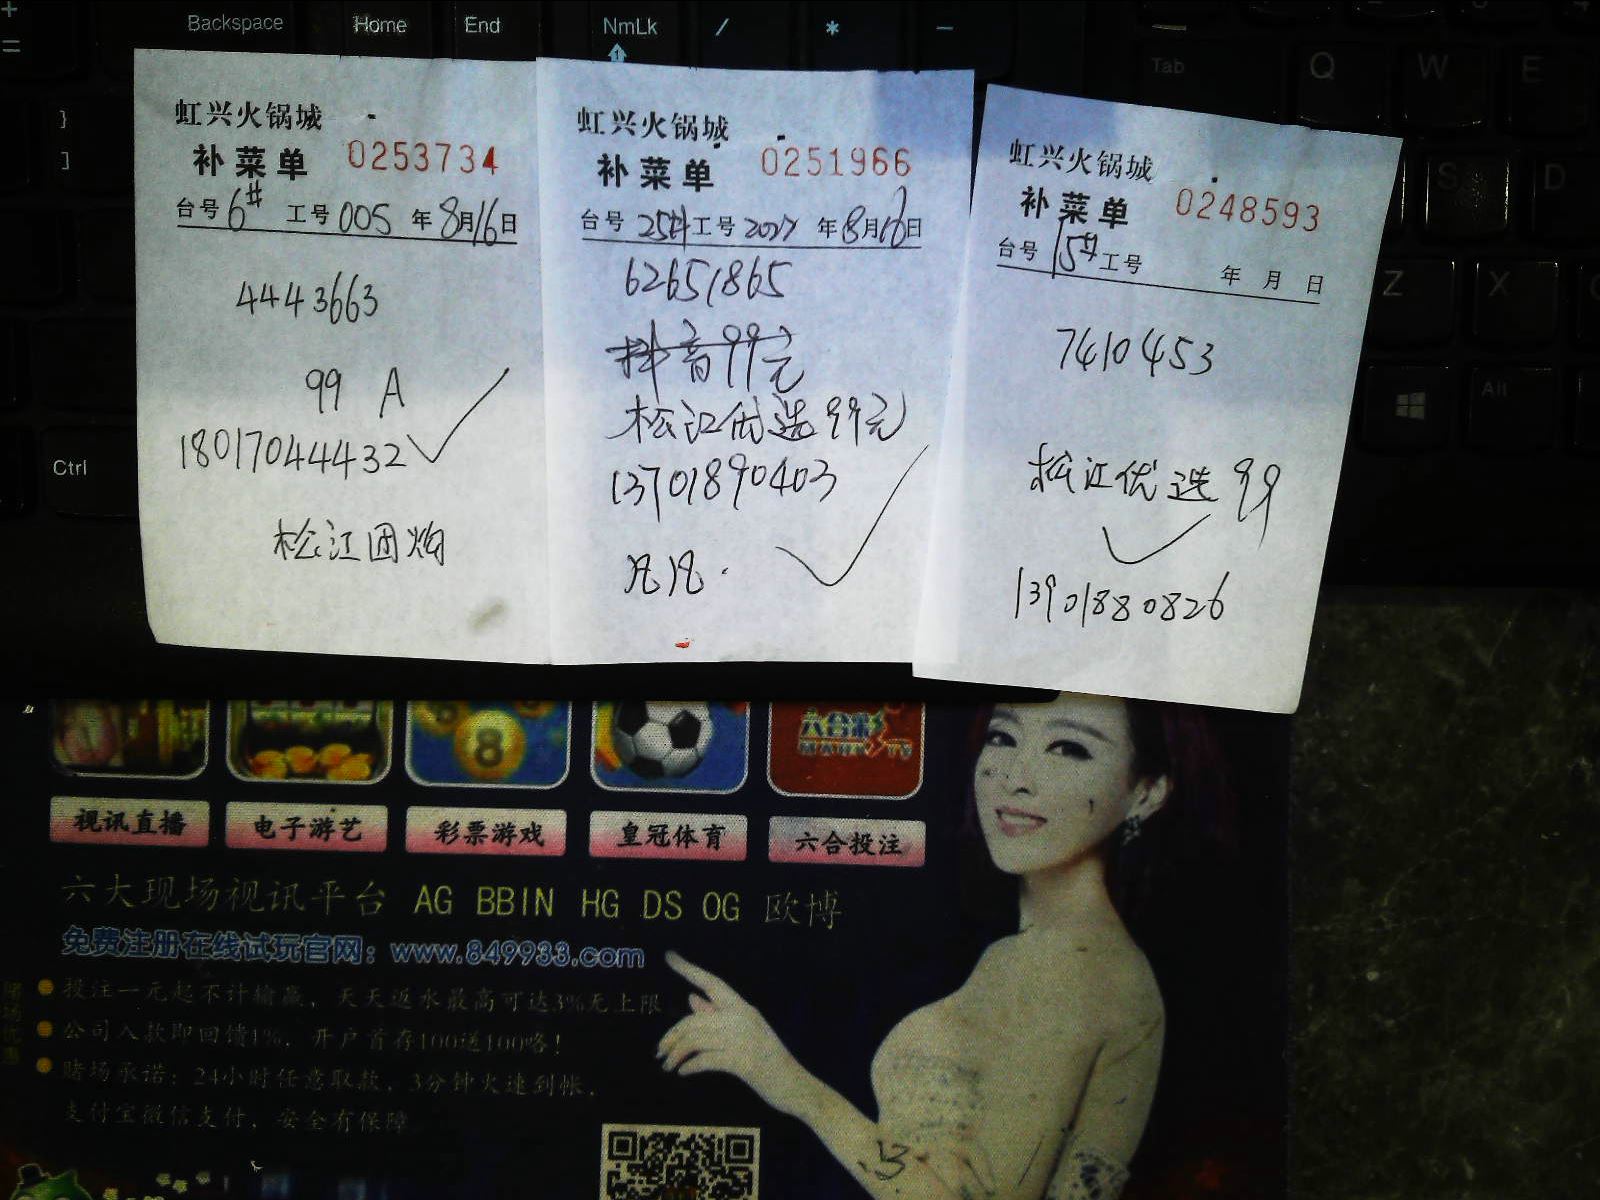 Backspace
Home
End
NmLk
/
*
-
+
=
}
]
Ctrl
Tab
Q
W
E
S
D
Z
X
Alt
虹兴火锅城
补菜单 0253734
台号 6# 工号 005 年 8月16日
4443663
99 A
18017044432
虹兴火锅城
补菜单 0251966
台号 25# 工号 2027 年 8月16日
62651865
抖音99元
松江优选99元
13701890403
凡凡.
虹兴火锅城
补菜单 0248593
台号 15# 工号 年 月 日
7410453
松江优选 99
13901880826
松江团购
8
六合彩
MARK TV
视讯直播
电子游艺
彩票游戏
皇冠体育
六合投注
六大现场视讯平台 AG BBIN HG DS OG 欧博
免费注册在线试玩官网：www.849933.com
投注一元起不计输赢，天天返水最高可达3%无上限
公司入款即回馈1%，开户首存100送100咯！
赌场承诺：24小时任意取款，3分钟火速到帐，
支付宝微信支付，安全有保障